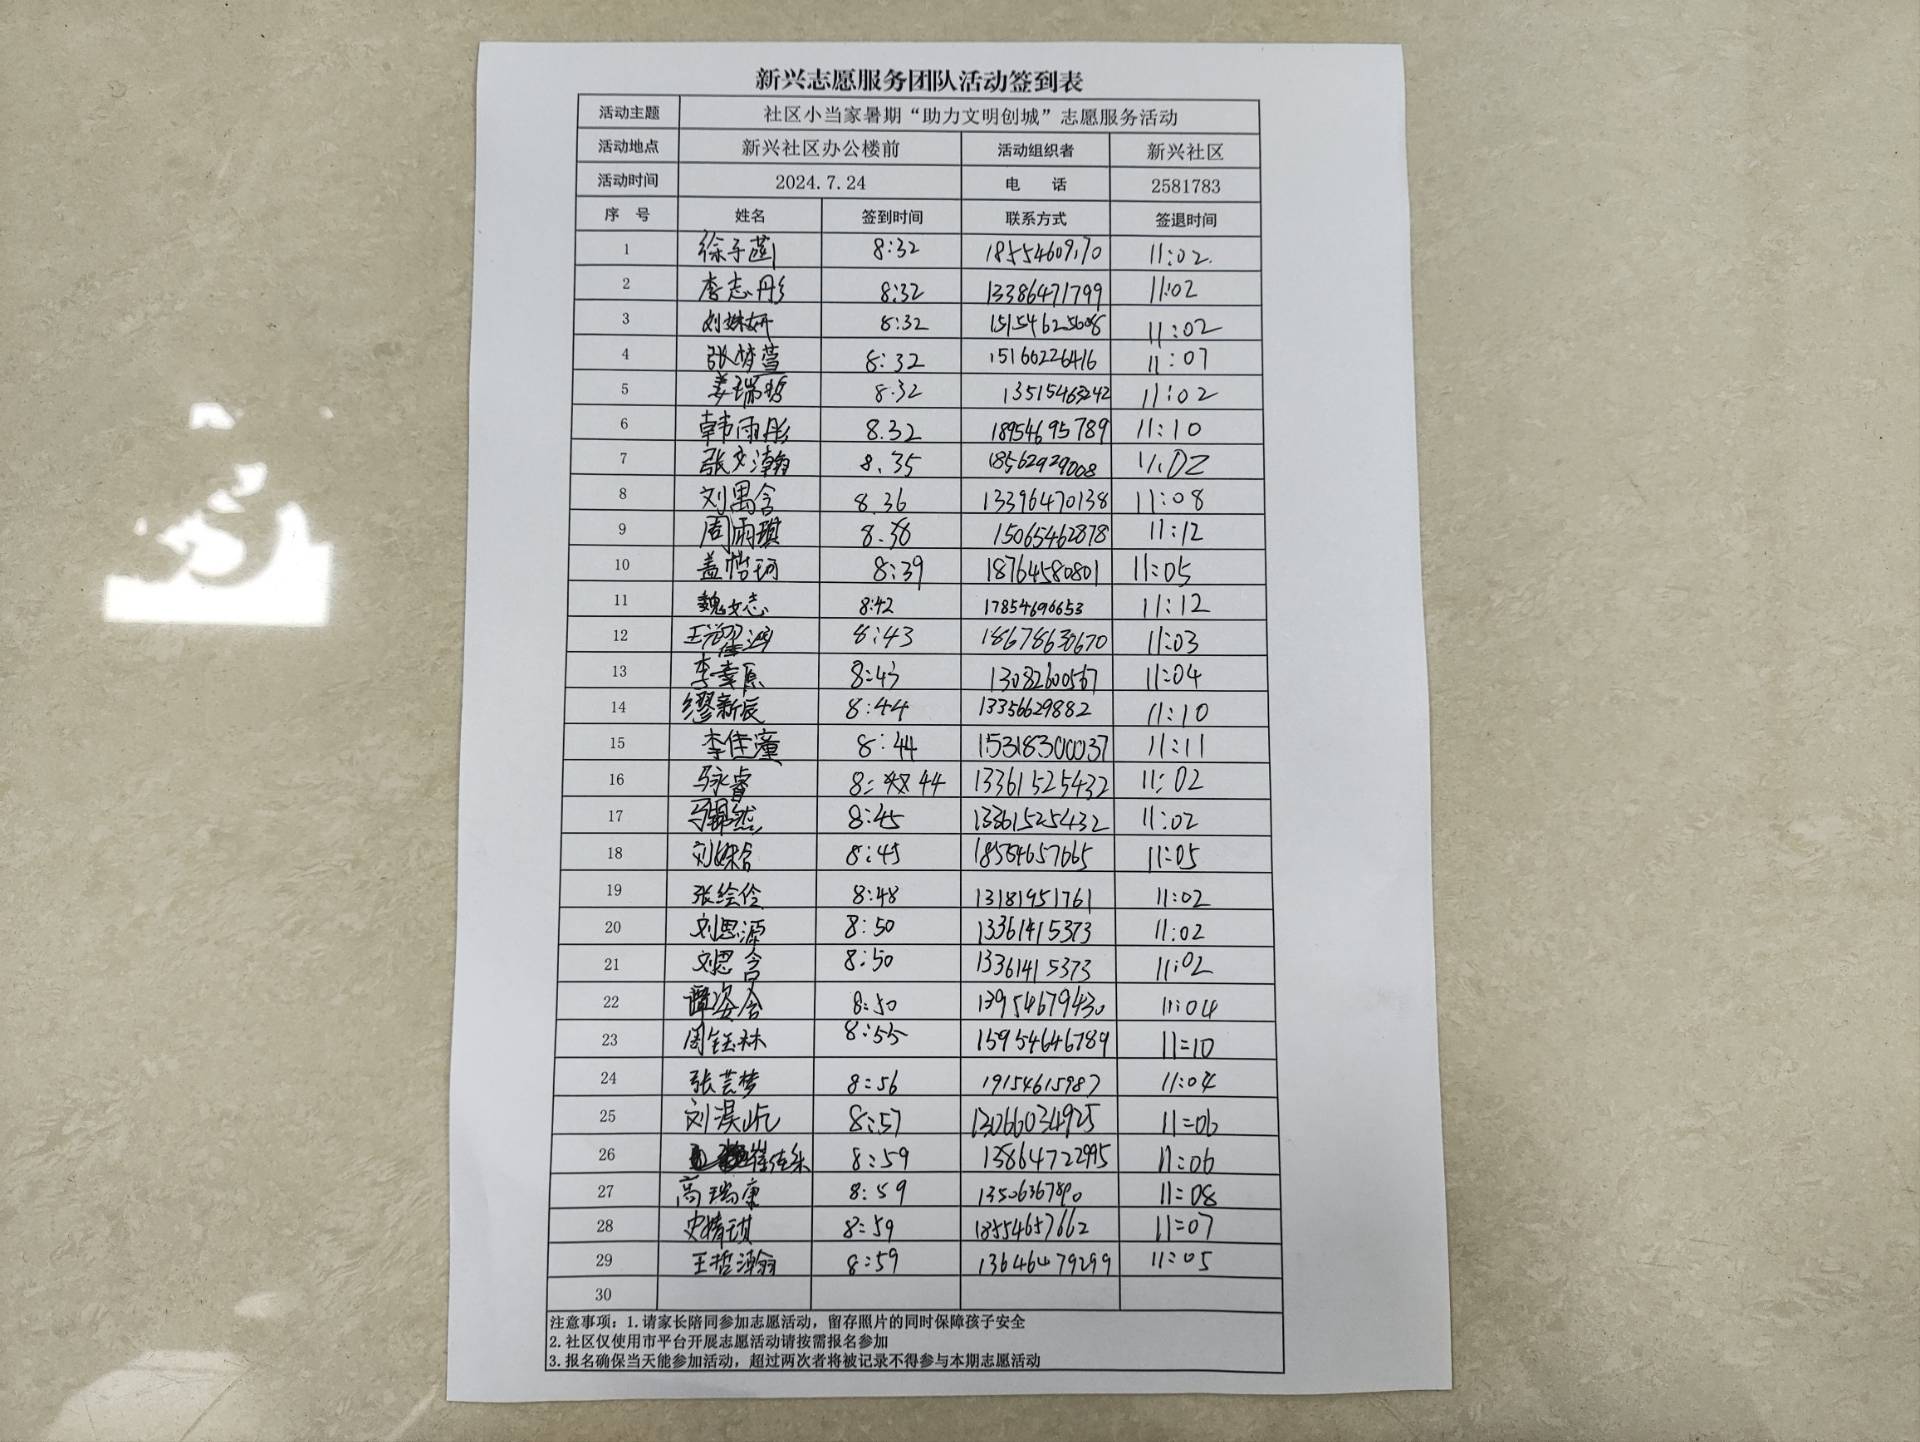 新兴志愿服务团队活动签到表
活动主题 社区小当家暑期“助力文明创城”志愿服务活动
活动地点 新兴社区办公楼前 活动组织者 新兴社区
活动时间 2024.7.24 电 话 2581783
序 号 姓名 签到时间 联系方式 签退时间
1 徐子菡 8:32 11:02.
2 李志彤 8:32 13386471799 11:02
3 刘姝妍 8:32 15154625608 11:02
4 张梦萱 8:32 15166226416 11:07
5 姜瑞哲 8.32 11:02
6 韩雨彤 8.32 18954695789 11:10
7 张文瀚 8.35 18562929008 11:02
8 刘禺含 8.36 13396470138 11:08
9 周雨琪 8.38 15065462878 11:12
10 盖恬珂 8:39 18764580801 11:05
11 魏文志 8:42 17854696653 11:12
12 8:43 18678630670 11:03
13 李幸原 8:43 13082600567 11:04
14 缪新辰 8:44 13356629882 11:10
15 李佳潼 8:44 15318300037 11:11
16 马永睿 8:44 13361525432 11:02
17 8:45 13361525432 11:02
18 刘姝含 8:45 18554657665 11:05
19 张绘伶 8:48 13181951761 11:02
20 刘思源 8:50 13361415373 11:02
21 刘思含 8:50 13361415373 11:02
22 谭姿含 8:50 13954679430 11:04
23 周钰林 8:55 15954646789 11=10
24 张芸梦 8=56 19154615987 11:04
25 刘淏屹 8:57 13066034925 11=06
26 崔佳乐 8:59 13864722995 11:06
27 高瑞康 8:59 13506367890 11=08
28 史精琪 8=59 18554657662 11=07
29 王哲瀚 8:59 13646479299 11:05
30
注意事项：1.请家长陪同参加志愿活动，留存照片的同时保障孩子安全
2.社区仅使用市平台开展志愿活动请按需报名参加
3.报名确保当天能参加活动，超过两次者将被记录不得参与本期志愿活动